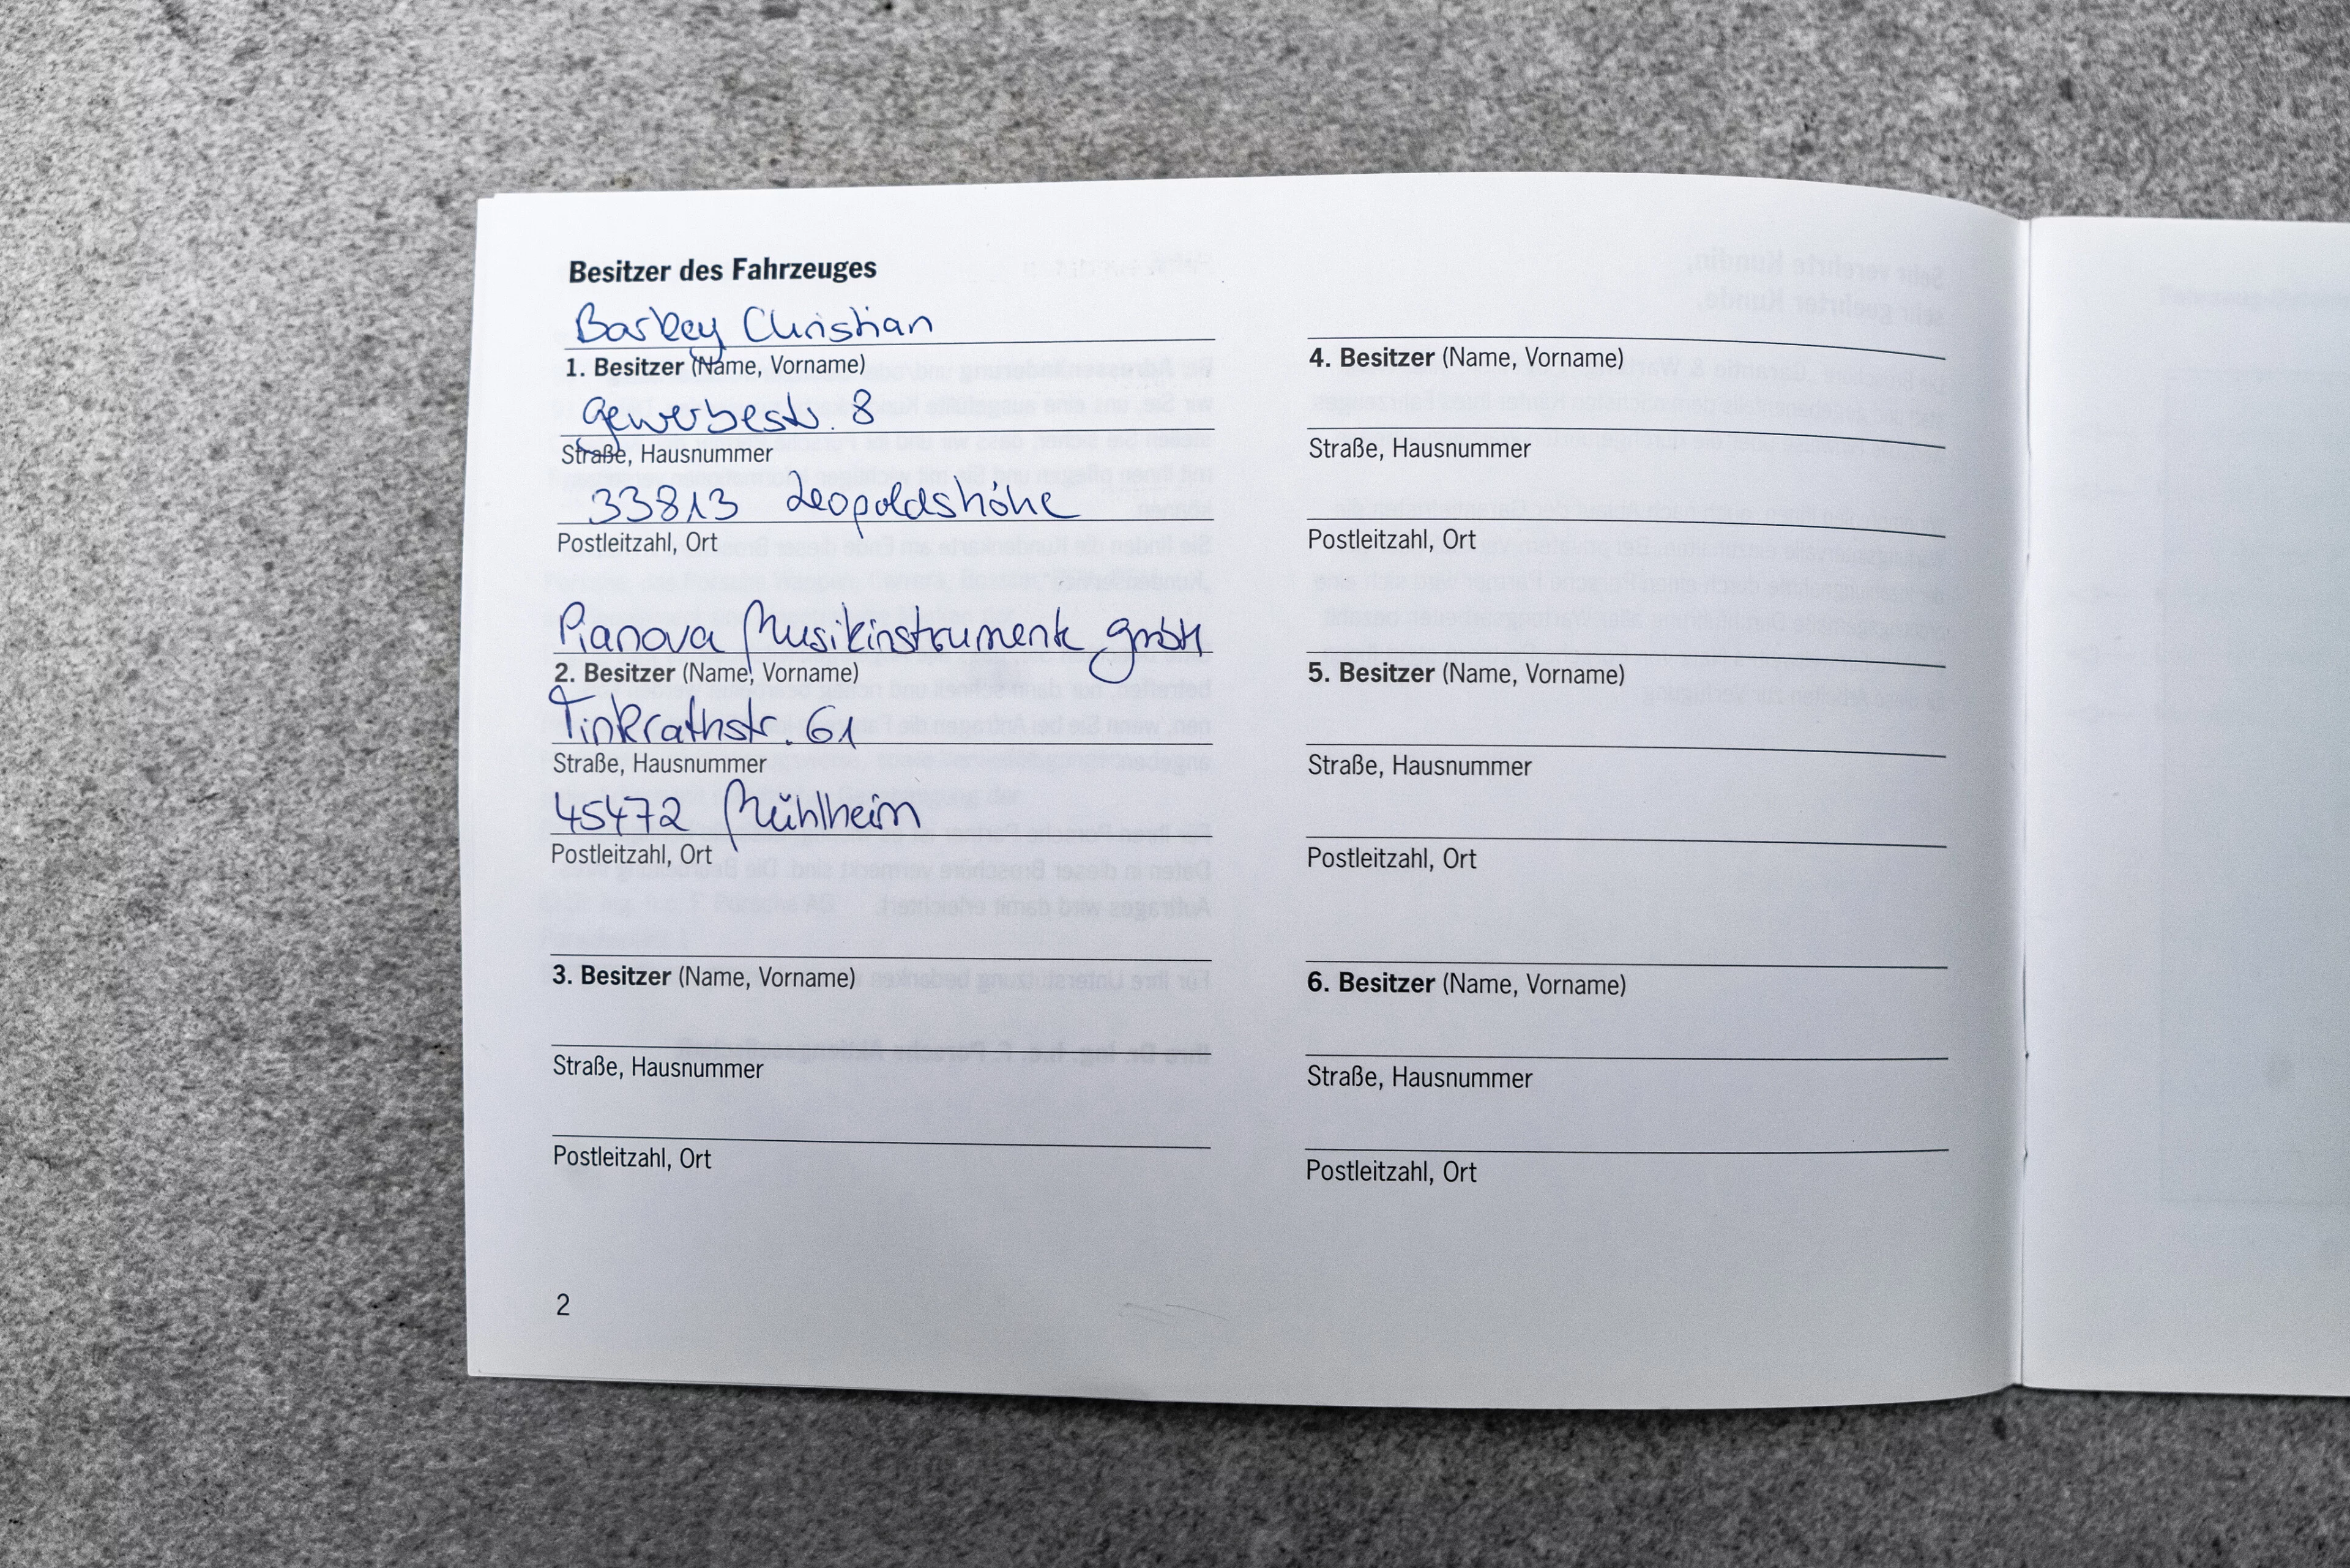 Besitzer des Fahrzeuges
Barkey Christian
1. Besitzer (Name, Vorname)
Gewerbestr. 8
Straße, Hausnummer
33813 Leopoldshöhe
Postleitzahl, Ort
Pianova Musikinstrumente GmbH
2. Besitzer (Name, Vorname)
Tinkrathstr. 61
Straße, Hausnummer
45472 Mühlheim
Postleitzahl, Ort
3. Besitzer (Name, Vorname)
Straße, Hausnummer
Postleitzahl, Ort
2
4. Besitzer (Name, Vorname)
Straße, Hausnummer
Postleitzahl, Ort
5. Besitzer (Name, Vorname)
Straße, Hausnummer
Postleitzahl, Ort
6. Besitzer (Name, Vorname)
Straße, Hausnummer
Postleitzahl, Ort